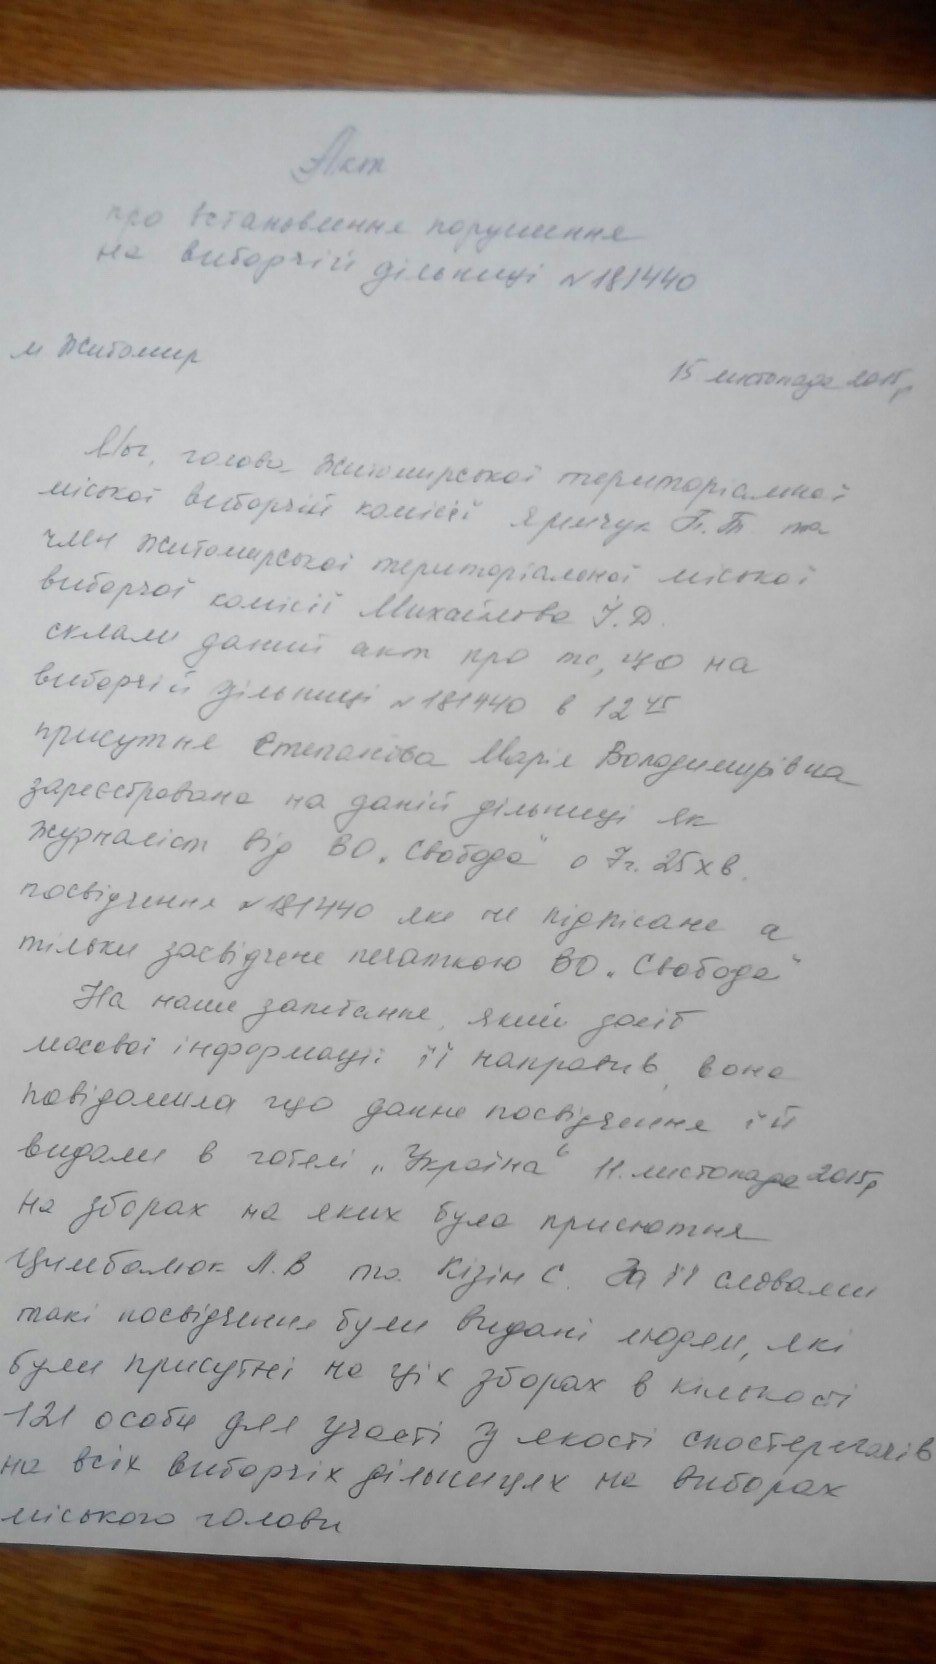 Акт
про встановлення порушення
на виборчій дільниці №181440
м Житомир
15 листопада 2015р
Мы, голова Житомирської територіальної
міської виборчій комісії Яремчук П.Т та
член Житомирської територіальної міської
виборчої комісії Михайлова І.Д.
склали даний акт про те, що на
виборчій дільниці №181440 в 12 45
присутня Степанова Марія Володимирівна
зареєстрована на даній дільниці як
журналіст від ВО „Свобода" о 7г. 25хв.
посвідчення №181440 яке не підписане а
тільки засвідчене печаткою ВО „Свобода"
На наши запитання, який засіб
масової інформації її направив, вона
повідомила що данне посвідчення їй
видали в готелі „Україна" 11.листопада 2015р
на зборах на яких була присютня
Цимбалюк Л.В та Кізін С. За її словами
такі посвідчення були видані людям, які
були присутні на ціх зборах в кількості
121 особи для участі у якості спостерігачів
на всіх виборчіх дільницях на виборах
міського голови